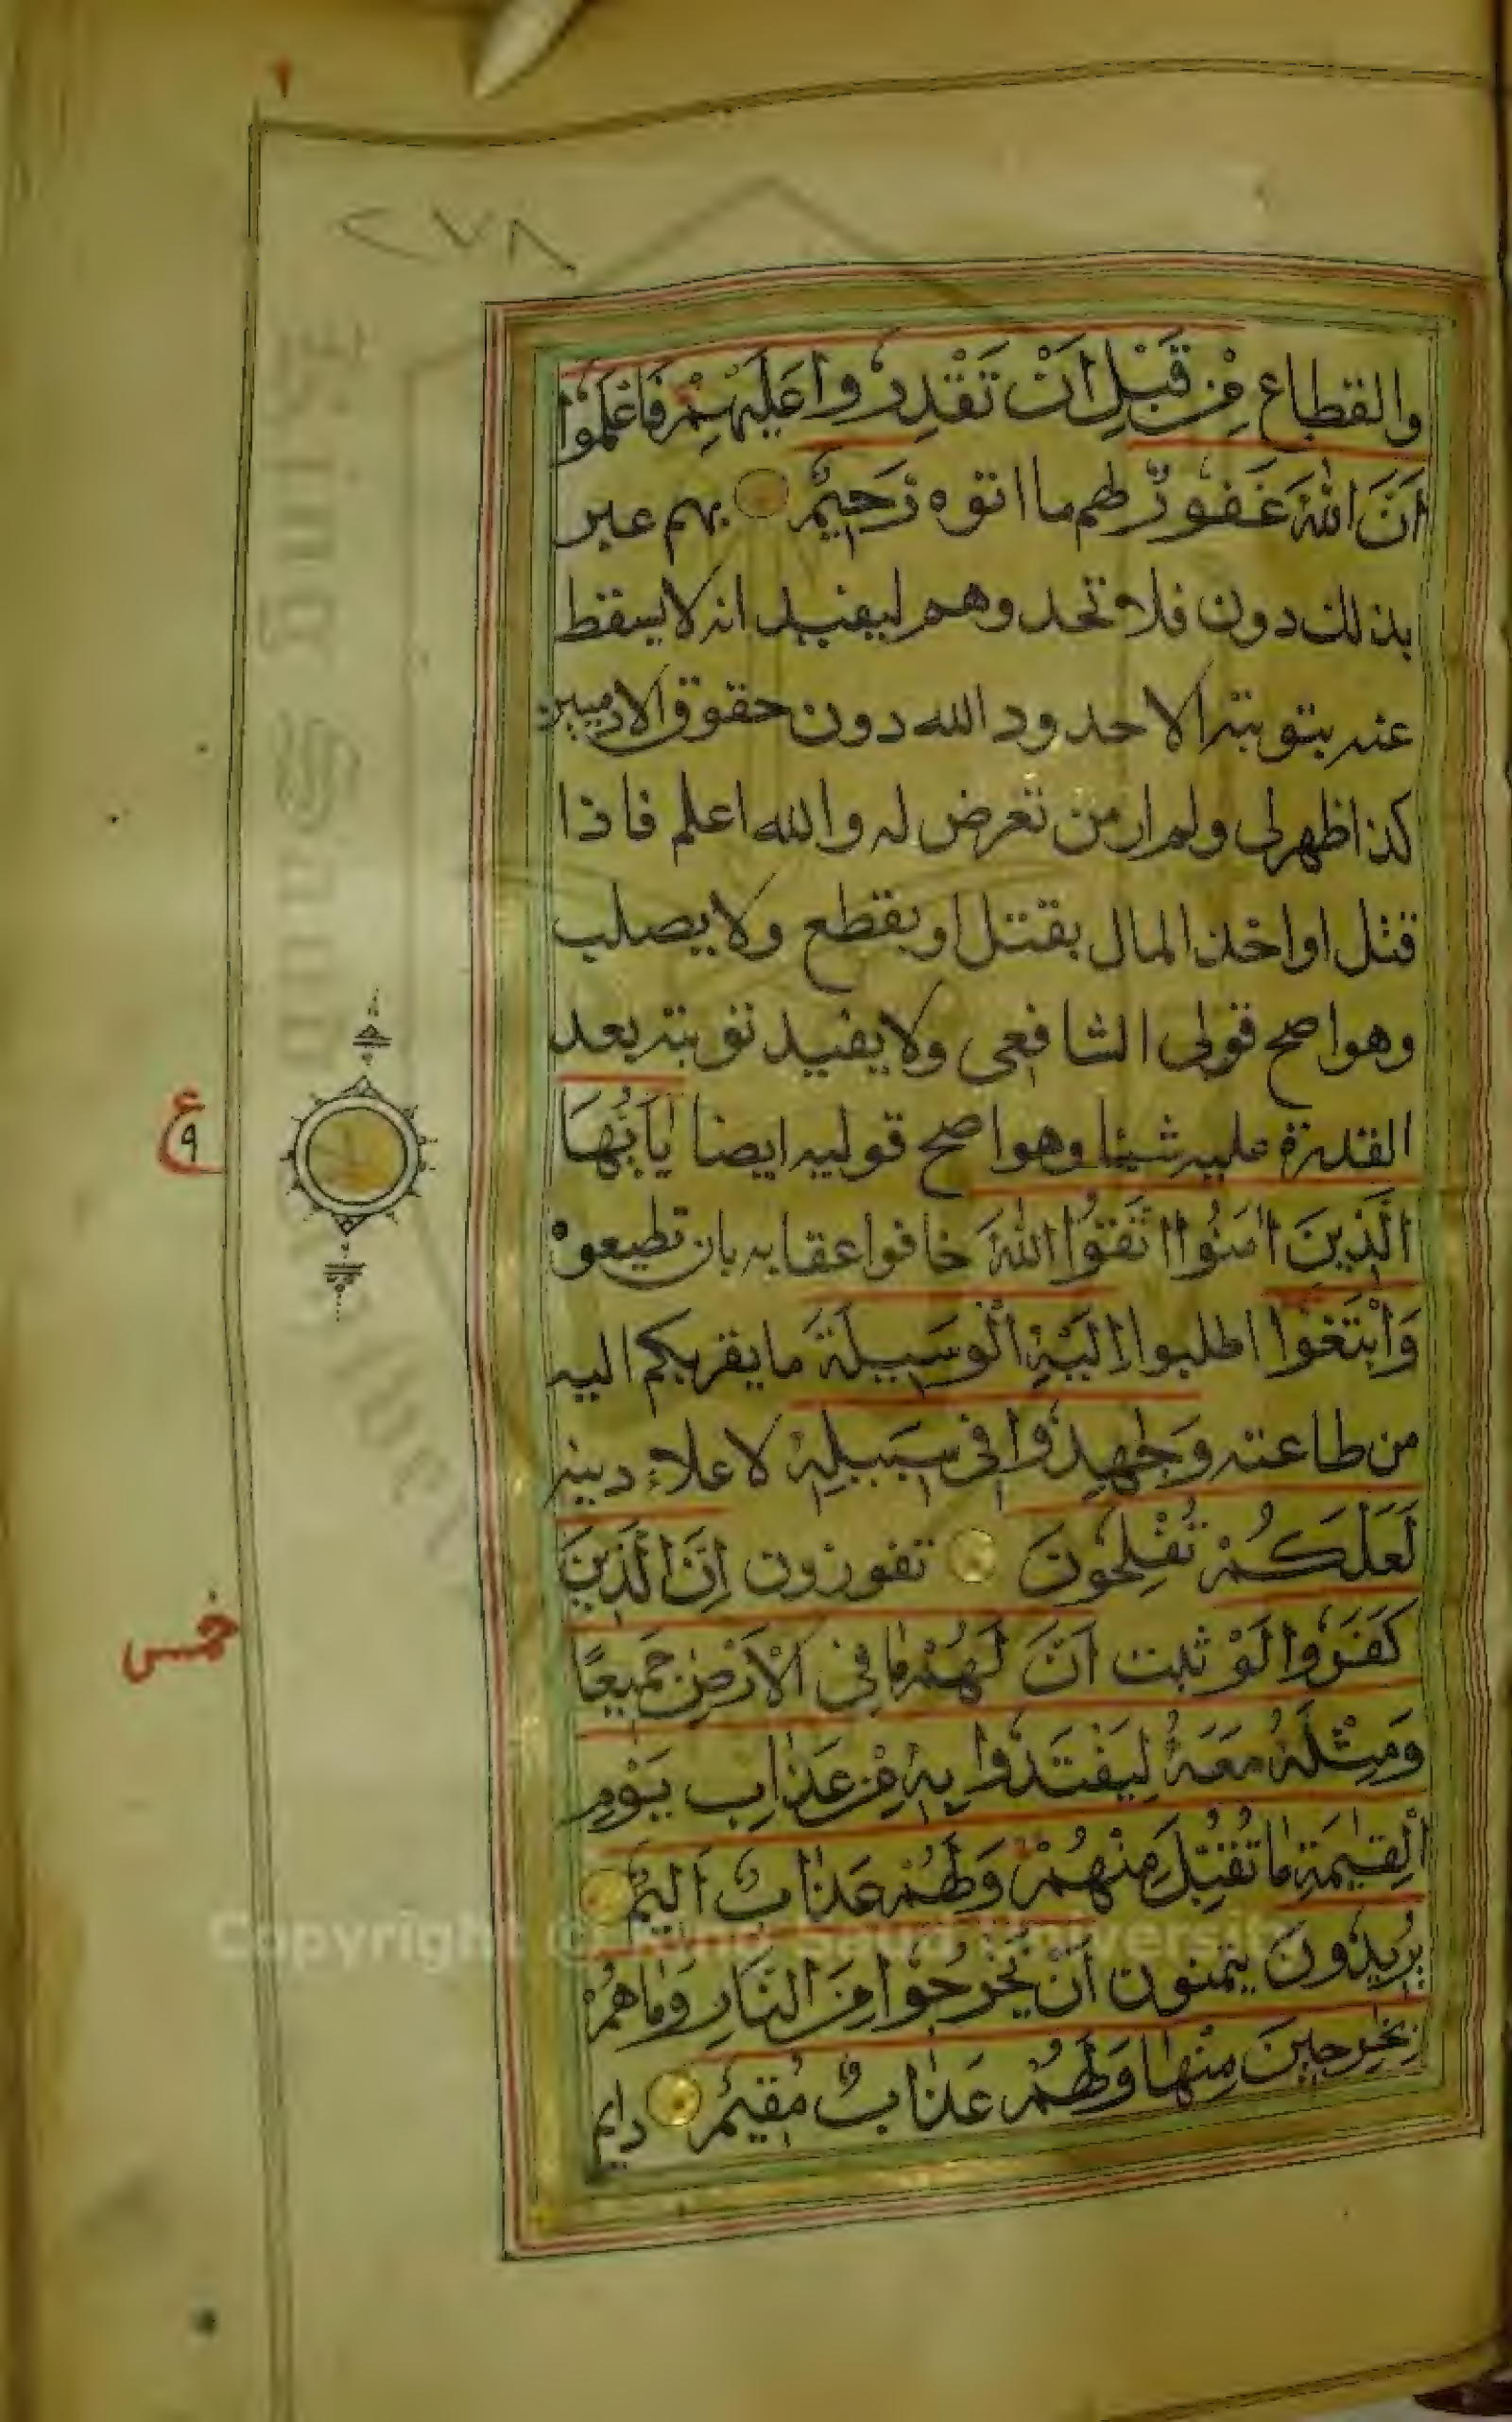 ٢٧٨
والقطاع مِنْ قَبْلِ اَنْ تَقْدِرُوا عَلَيْهِمْ فَاعْلَمُوا
اَنَّ اللّٰهَ غَفُورٌ لهم ما اتوه رَحِيمٌ بهم عبر
بذلك دون فلا تحدوهم ليفيد انه لا يسقط
عنه بتوبته الا حدود الله دون حقوق الادميين
كذا ظهر لى ولم ار من تعرض له والله اعلم فاذا
قتل او اخذ المال يقتل او يقطع ولا يصلب
وهو اصح قولى الشافعى ولا يفيد توبته بعد
القدرة عليه شيئا وهو اصح قوليه ايضا يٰاَيُّهَا
الَّذِينَ اٰمَنُوا اتَّقُوا اللّٰهَ خافوا عقابه بان تطيعوه
وَابْتَغُوا اطلبوا اِلَيْهِ الْوَسِيلَةَ ما يقربكم اليه
من طاعته وَجٰهِدُوا فِى سَبِيلِهٖ لاعلاء دينه
لَعَلَّكُمْ تُفْلِحُونَ تفوزون اِنَّ الَّذِينَ
كَفَرُوا لَوْ ثبت اَنَّ لَهُمْ مٰا فِى الْاَرْضِ جَمِيعًا
وَمِثْلَهُ مَعَهُ لِيَفْتَدُوا بِهٖ مِنْ عَذٰابِ يَوْمِ
الْقِيٰمَةِ مٰا تُقُبِّلَ مِنْهُمْ وَلَهُمْ عَذٰابٌ اَلِيمٌ
يُرِيدُونَ يتمنون اَنْ يَخْرُجُوا مِنَ النَّارِ وَمٰا هُمْ
بِخٰرِجِينَ مِنْهٰا وَلَهُمْ عَذٰابٌ مُقِيمٌ دايم
ع
٩
خمس
Copyright © King Saud University
King Saud University